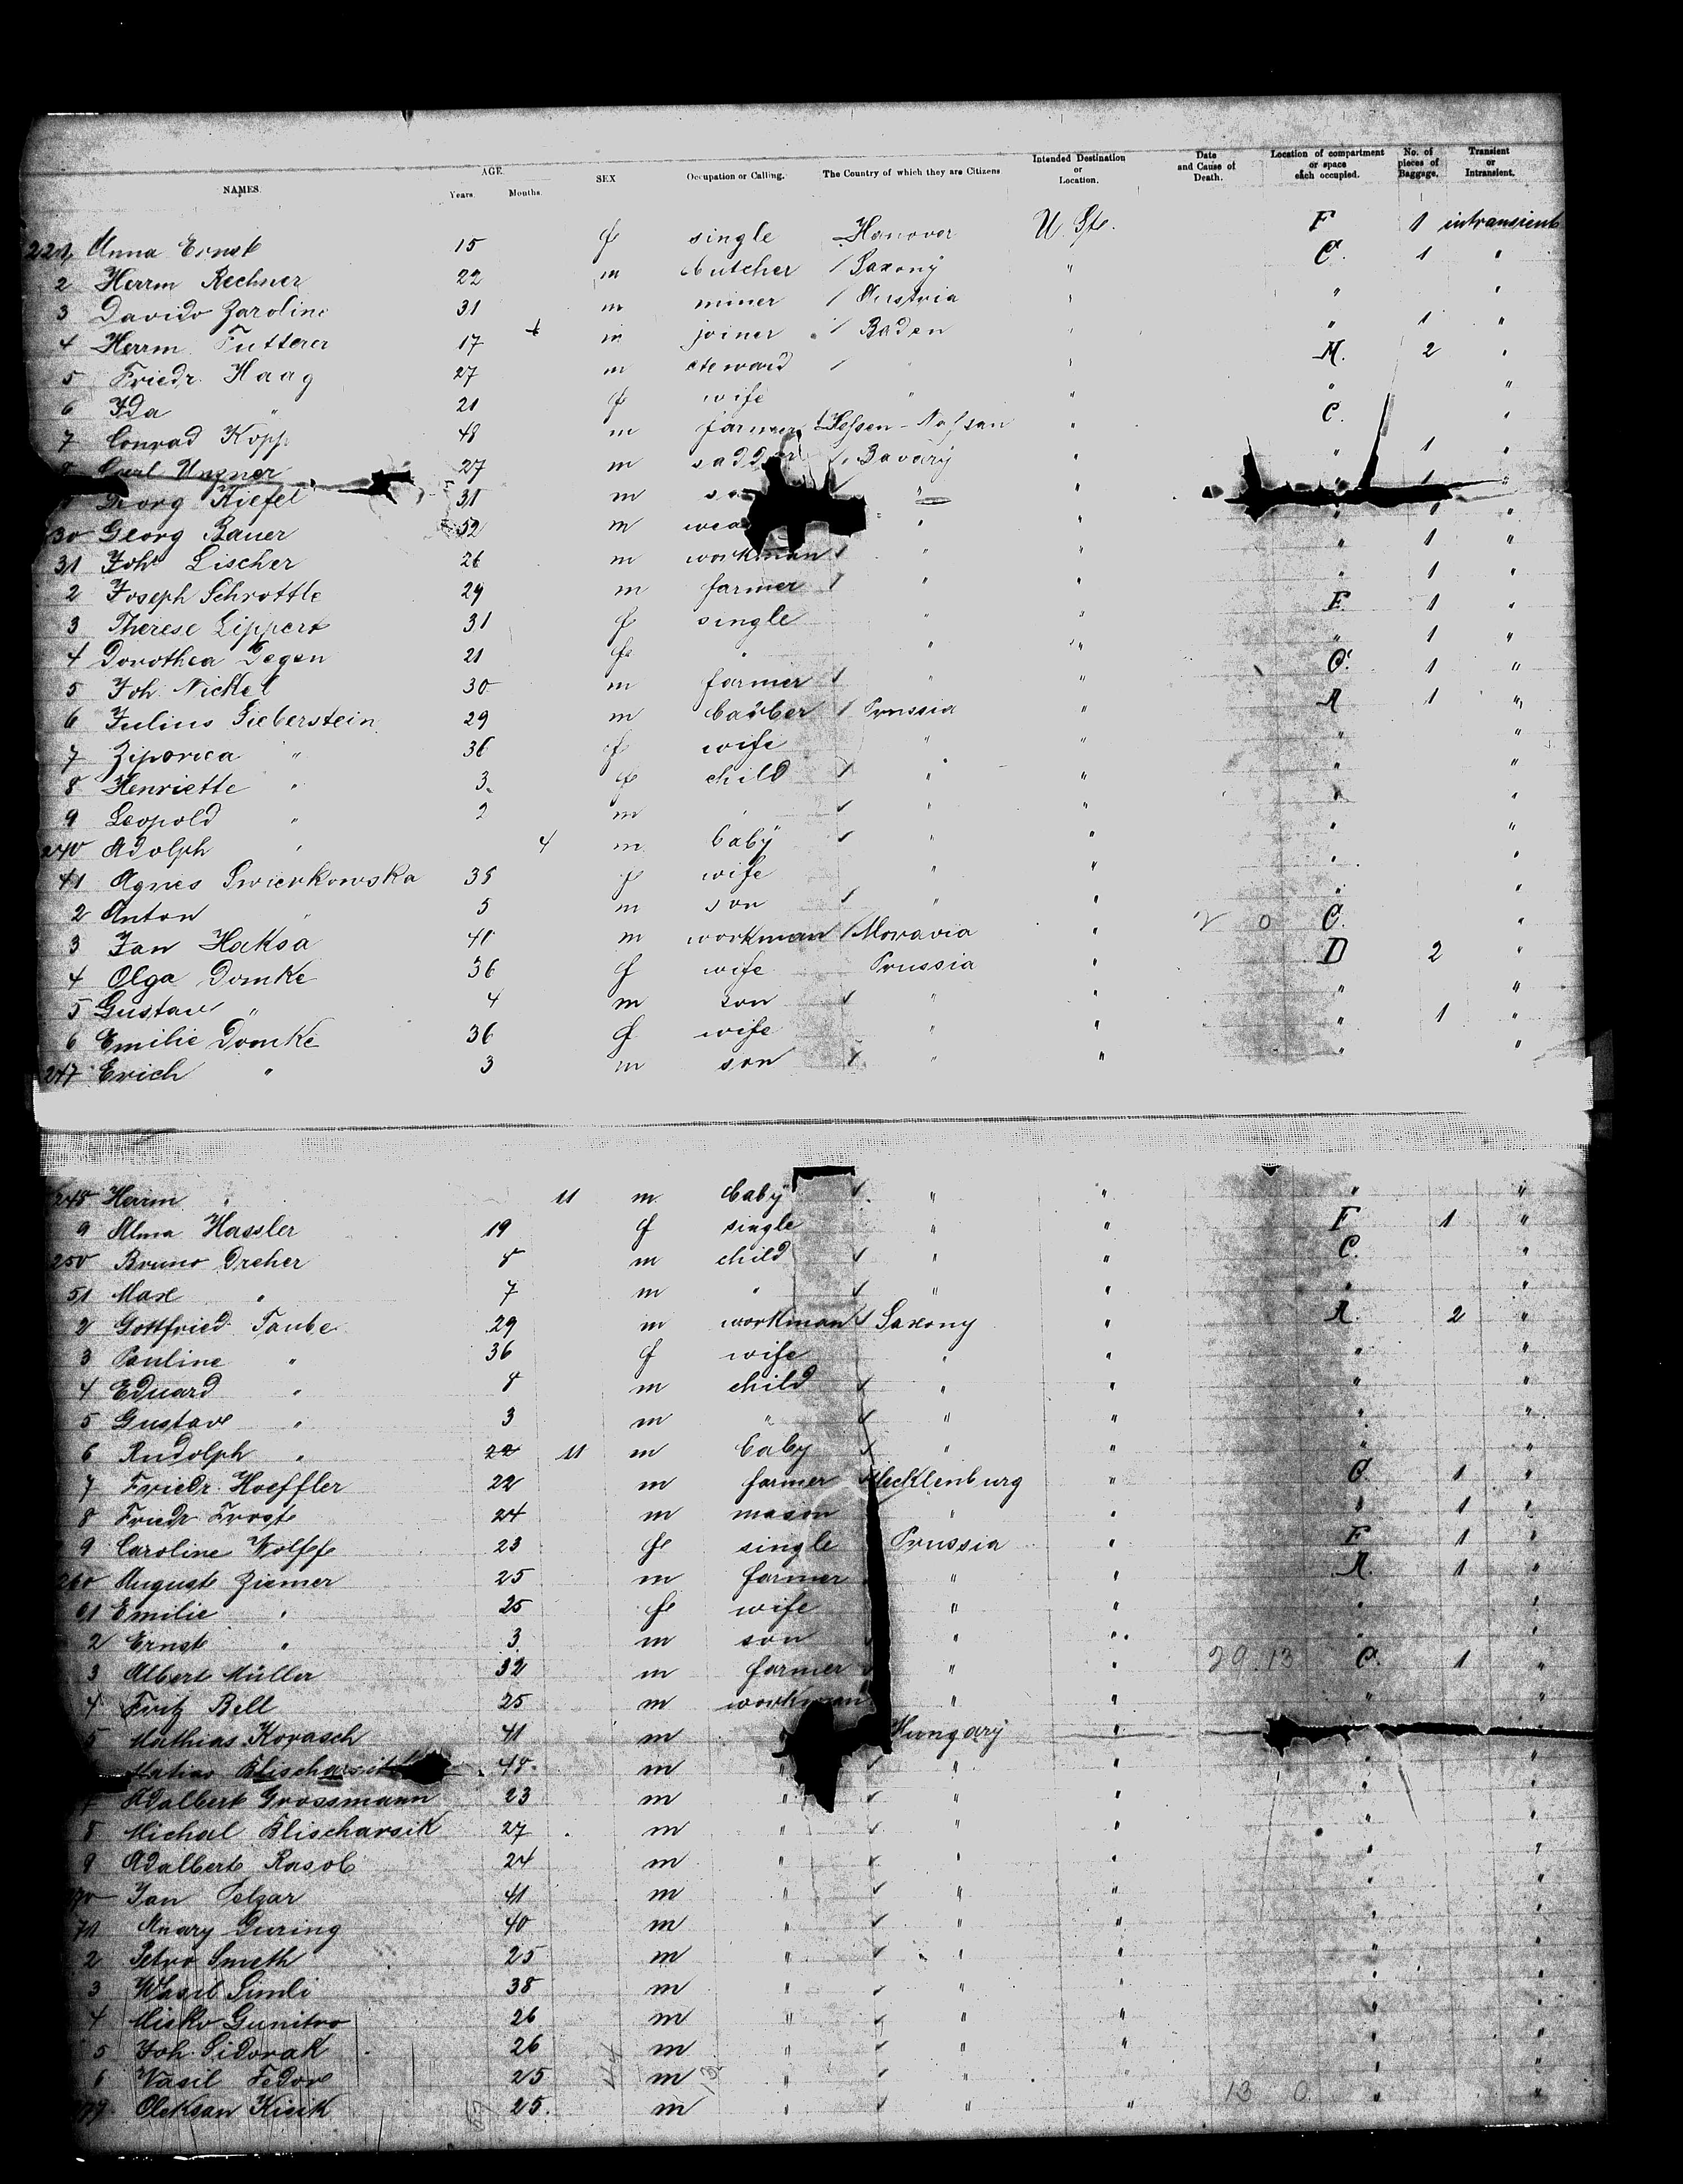 NAMES. AGE. Years. Months. SEX Occupation or Calling. The Country of which they are Citizens Intended Destination or Location. Date and Cause of Death. Location of compartment or space each occupied. No. of pieces of Baggage. Transient or Intransient.
221 Anna Ernst 15 f single Hanover U. Sts. F 1 intransient
2 Herrm Rechner 22 m butcher / Saxony " C. 1 "
3 Davido Zaroline 31 m miner / Austria " " "
4 Herrm. Futterer 17 m joiner / Baden " " 1 "
5 Friedr. Haag 27 m steward / " " M. 2 "
6 Ida " 21 f wife " " " "
7 Conrad Kopp 48 m farmer Hessen-Nassau " C. "
8 Carl 27 m / Bavary " " 1 "
Georg Kiefel 31 m " " 1 "
30 Georg Bauer 52 m " " " " "
31 Joh. Lischer 26 m workman / " " " 1 "
2 Joseph Schrottle 29 m farmer / " " " 1 "
3 Therese Lippert 31 f single " " F. 1 "
4 Dorothea Degen 21 f " " " " 1 "
5 Joh. Nickel 30 m farmer / " " C. 1 "
6 Julius Gieberstein 29 m barber / Prussia " A 1 "
7 Ziporica " 36 f wife " " " "
8 Henriette " 3 f child / " " " "
9 Leopold " 2 m " / " " " "
240 Adolph " 4 m baby / " " " "
41 Agnes Swierkowska 35 f wife " " " "
2 Anton " 5 m son / " " " "
3 Jan Haksa 41 m workman / Moravia " 0 C. "
4 Olga Domke 36 f wife Prussia " D 2 "
5 Gustav " 4 m son / " " " "
6 Emilie Domke 36 f wife " " " 1 "
247 Erich " 3 m son / " " " "
248 Herrm. " 11 m baby / " " " "
9 Alma Hassler 19 f single " " F 1 "
250 Bruno Dreher 8 m child / " " C. "
51 Max " 7 m " / " " " "
2 Gottfried Taube 29 m workman / Saxony " A. 2 "
3 Pauline " 36 f wife " " " "
4 Eduard " 8 m child / " " " "
5 Gustav " 3 m " / " " " "
6 Rudolph " 22 11 m baby / " " " "
7 Friedr. Hoeffler 22 m farmer Mecklenburg " C. 1 "
8 Friedr. Froste 24 m mason " " " 1 "
9 Caroline Wolffe 23 f single Prussia " F 1 "
260 August Ziemer 25 m farmer " " A. 1 "
61 Emilie " 25 f wife " " " "
2 Ernst " 3 m son " " " "
3 Albert Müller 32 m farmer " " 29 13 C. 1 "
4 Fritz Bell 25 m workman " " " "
5 Mathias Kovasch 41 m Hungary " "
48 m " / " " " "
7 Adalbert Grossmann 23 m " / " " " "
8 Michal Blischarsik 27 m " / " " " "
9 Adalbert Rasob 24 m " / " " " "
270 Jan Pelzar 41 m " / " " " "
71 Anary Guring 40 m " / " " " "
2 Petro Smeth 25 m " / " " " "
3 Wasil Simli 38 m " / " " " "
4 Misko Gunitro 26 m " / " " " "
5 Joh. Sidorak 26 m " / " " " "
6 Wasil Fedor 25 m " / " " " "
Oleksan Kisik 25. m " / " " 13 0 " "